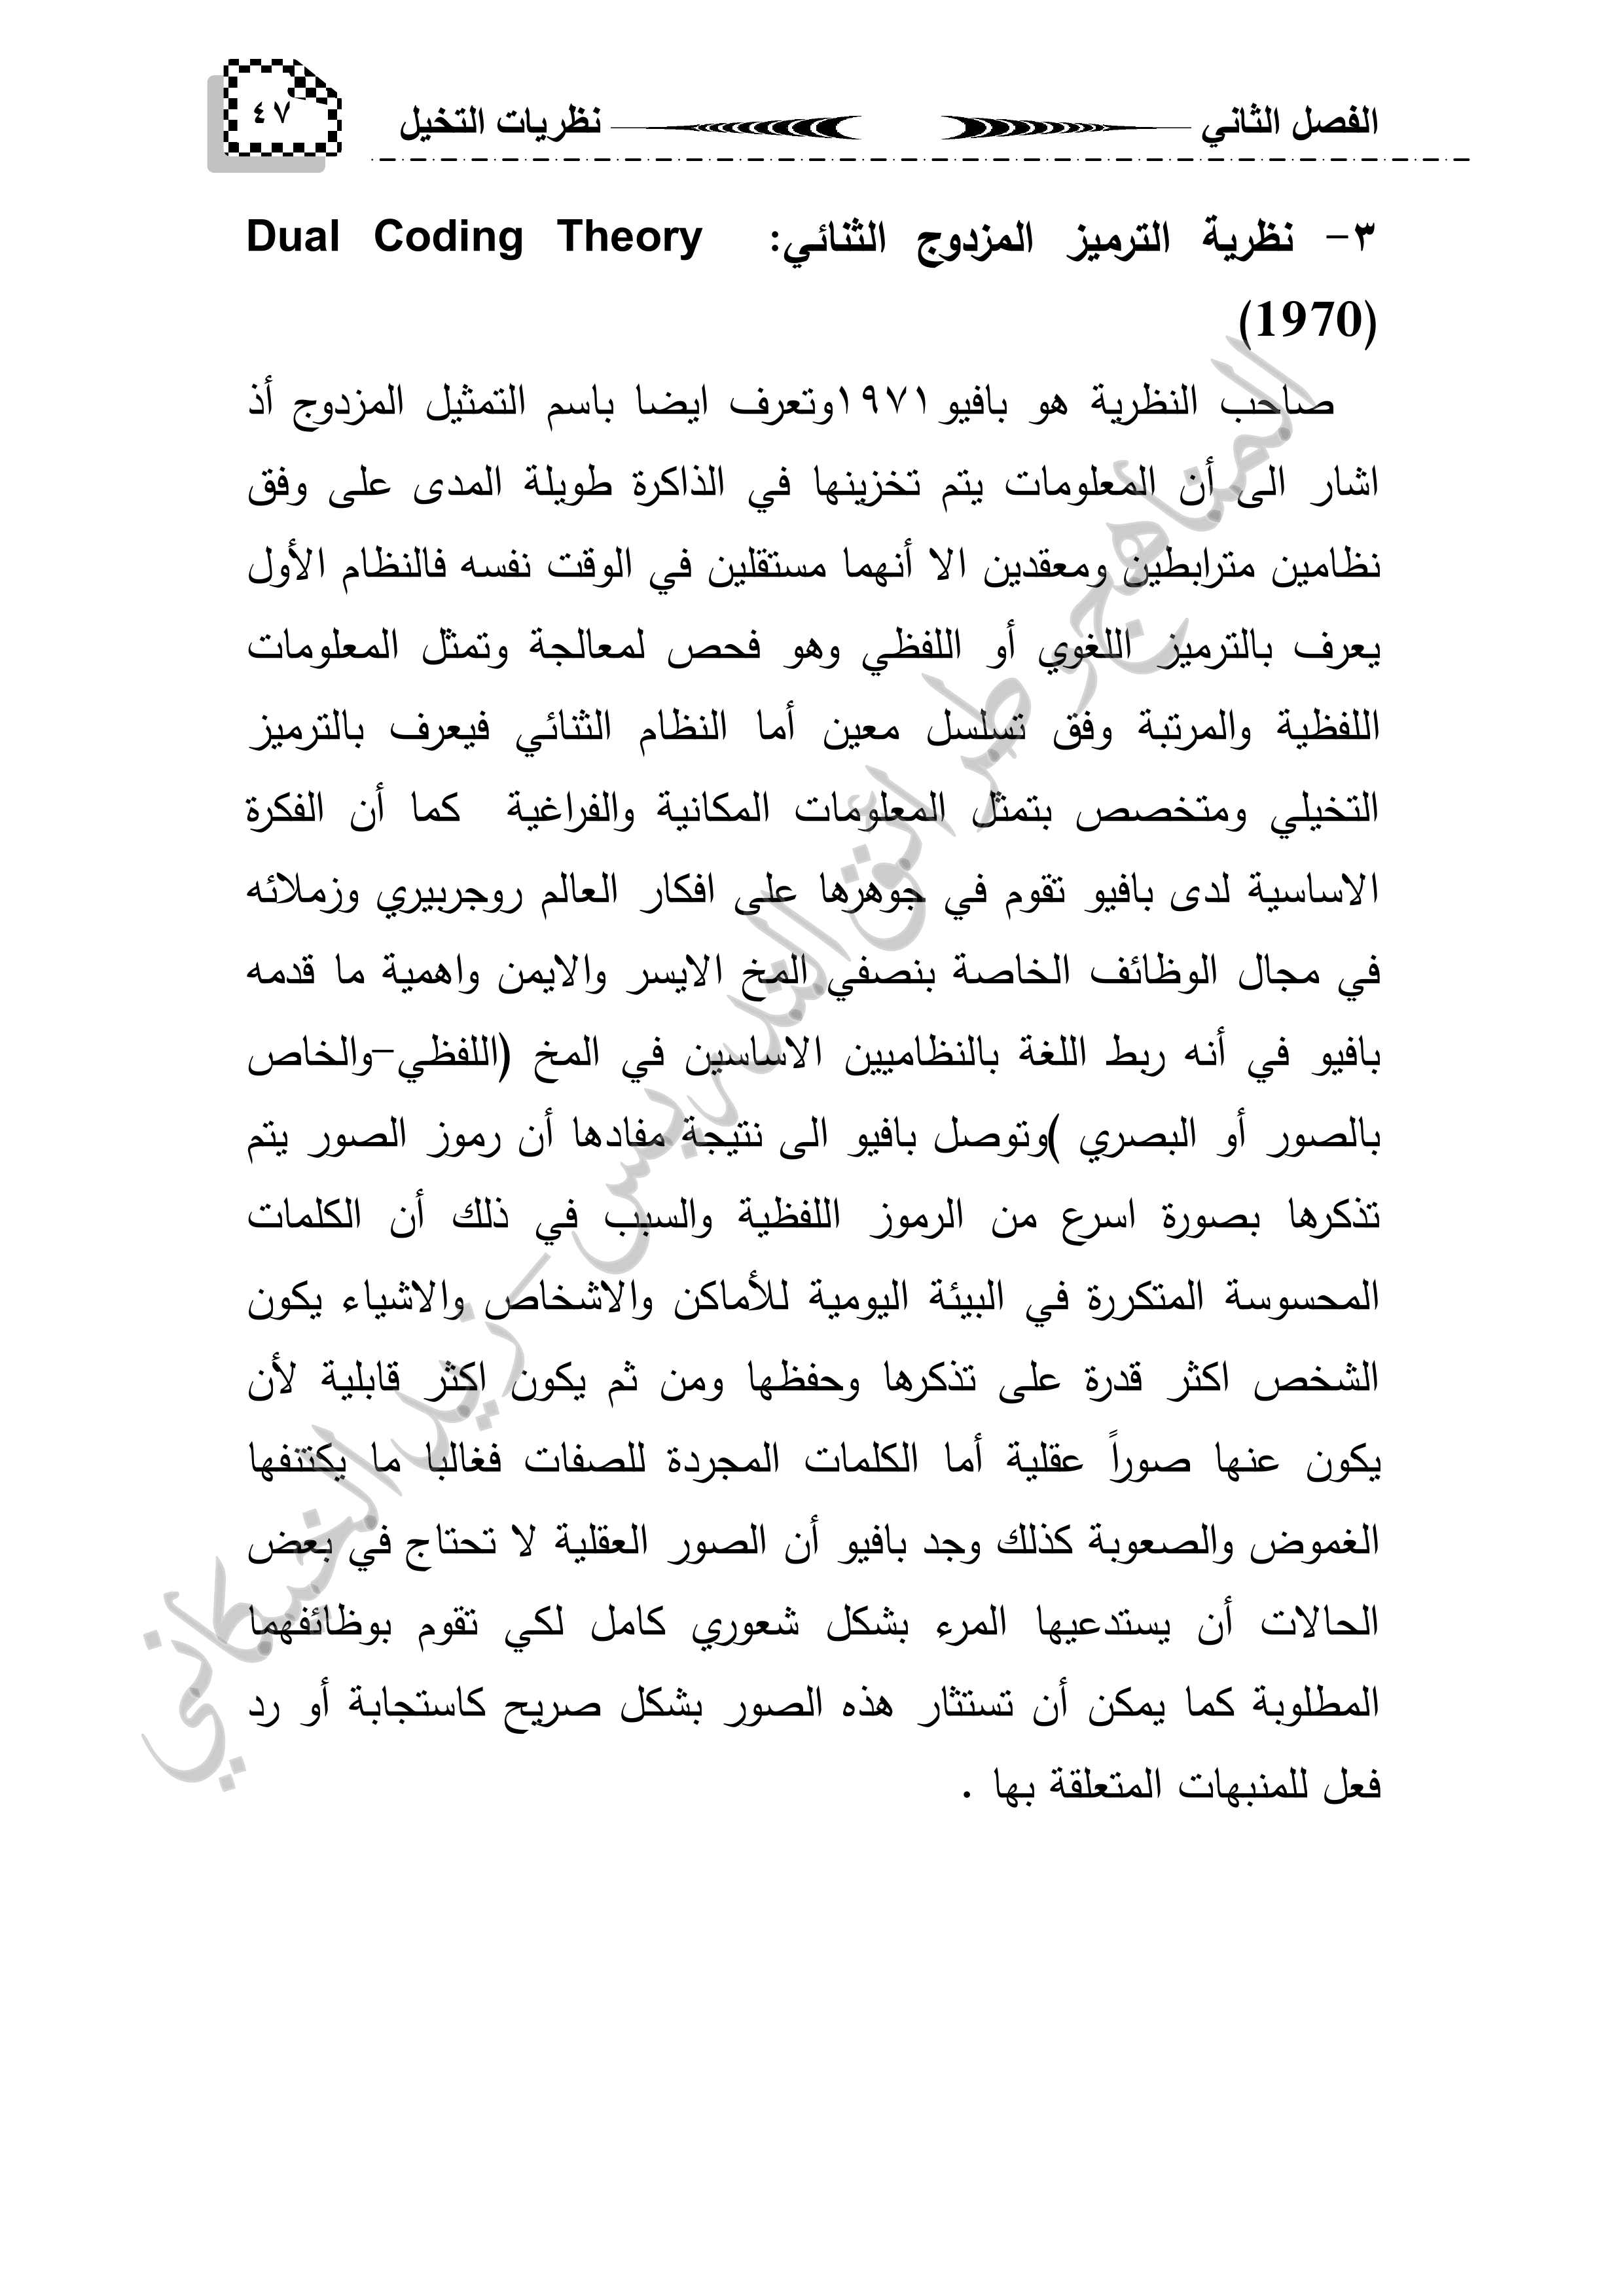 الفصل الثاني نظريات التخيل ٤٧
٣- نظرية الترميز المزدوج الثنائي: Dual Coding Theory
(1970)
صاحب النظرية هو بافيو ١٩٧١وتعرف ايضا باسم التمثيل المزدوج أذ
اشار الى أن المعلومات يتم تخزينها في الذاكرة طويلة المدى على وفق
نظامين مترابطين ومعقدين الا أنهما مستقلين في الوقت نفسه فالنظام الأول
يعرف بالترميز اللغوي أو اللفظي وهو فحص لمعالجة وتمثل المعلومات
اللفظية والمرتبة وفق تسلسل معين أما النظام الثنائي فيعرف بالترميز
التخيلي ومتخصص بتمثل المعلومات المكانية والفراغية كما أن الفكرة
الاساسية لدى بافيو تقوم في جوهرها على افكار العالم روجربيري وزملائه
في مجال الوظائف الخاصة بنصفي المخ الايسر والايمن واهمية ما قدمه
بافيو في أنه ربط اللغة بالنظاميين الاساسين في المخ (اللفظي-والخاص
بالصور أو البصري )وتوصل بافيو الى نتيجة مفادها أن رموز الصور يتم
تذكرها بصورة اسرع من الرموز اللفظية والسبب في ذلك أن الكلمات
المحسوسة المتكررة في البيئة اليومية للأماكن والاشخاص والاشياء يكون
الشخص اكثر قدرة على تذكرها وحفظها ومن ثم يكون اكثر قابلية لأن
يكون عنها صوراً عقلية أما الكلمات المجردة للصفات فغالبا ما يكتنفها
الغموض والصعوبة كذلك وجد بافيو أن الصور العقلية لا تحتاج في بعض
الحالات أن يستدعيها المرء بشكل شعوري كامل لكي تقوم بوظائفهما
المطلوبة كما يمكن أن تستثار هذه الصور بشكل صريح كاستجابة أو رد
فعل للمنبهات المتعلقة بها .
المناهج وطرائق التدريس - زيد الخيكاني